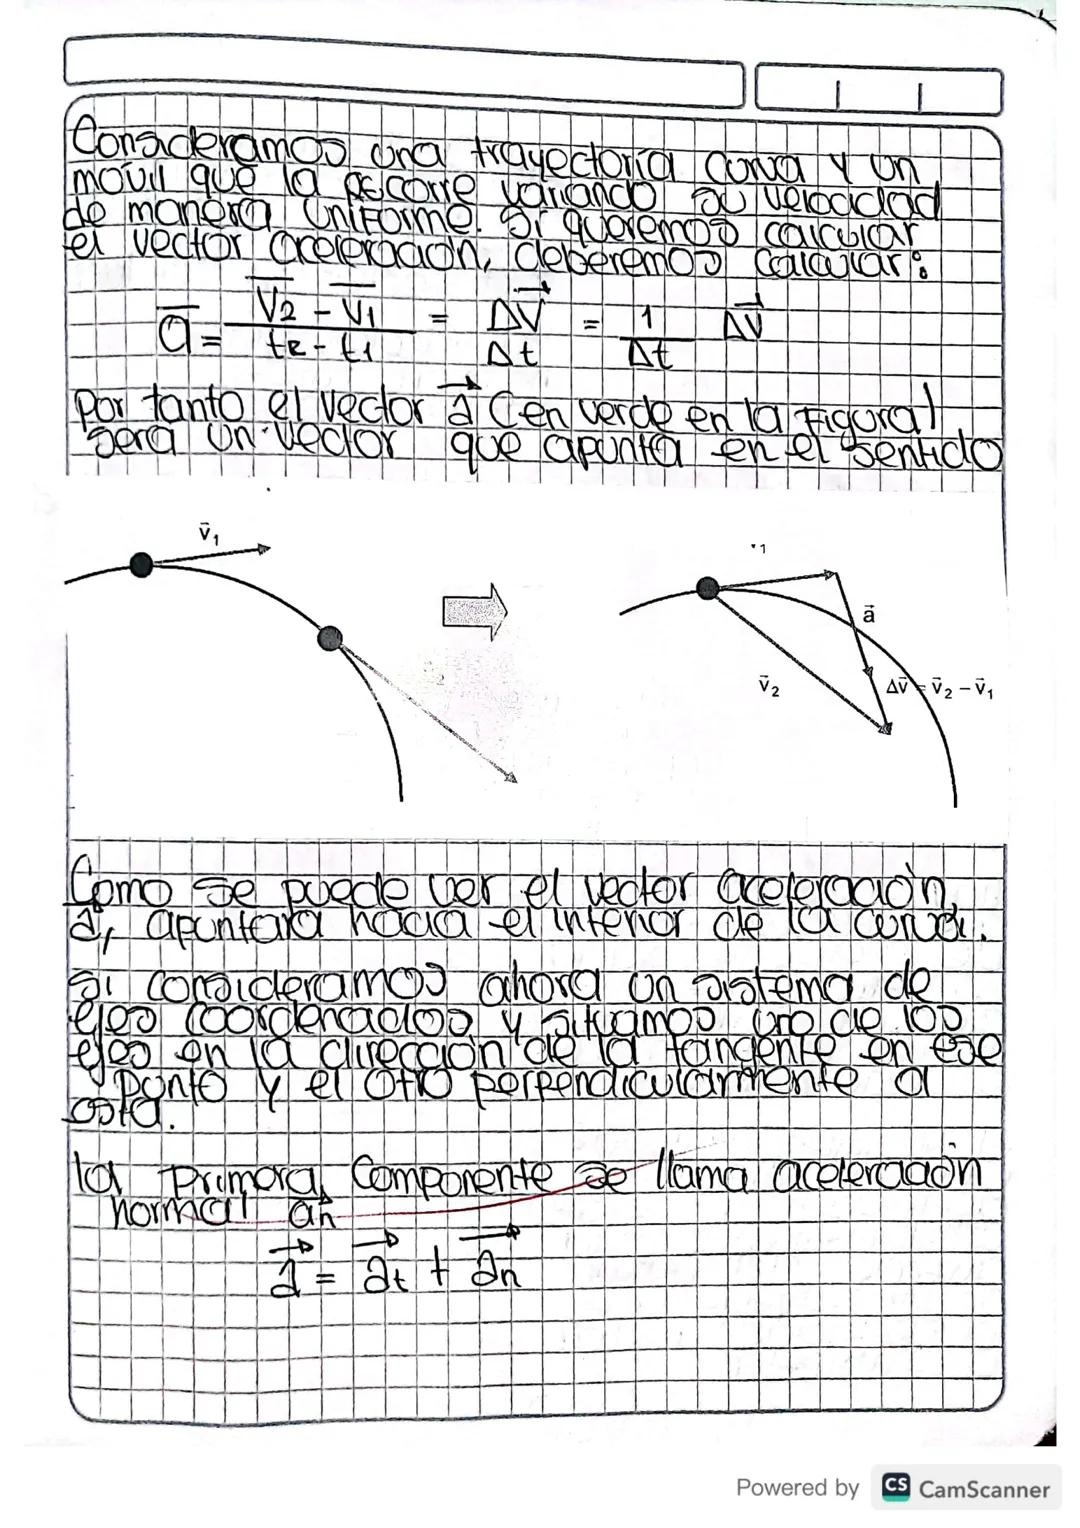 Consideramos una trayectoria curva y un
móvil que la recorre variando su velocidad
de manera uniforme. Si queremos calcular
el vector aceleración, deberemos calcular:
a = V2 - V1 / t2 - t1 = ΔV / Δt = 1 / Δt ΔV
Por tanto el vector a (en verde en la figura)
sera un vector que apunta en el sentido
v1
1
a
v2
Δv = v2 - v1
2
Como se puede ver el vector aceleración,
a, apuntara hacia el interior de la curva.
Si consideramos ahora un sistema de
ejes coordenados y situamos uno de los
ejes en la dirección de la tangente en ese
punto y el otro perpendicularmente a
esta.
la primera componente se llama aceleración
normal an
a = at + an
Powered by CS CamScanner